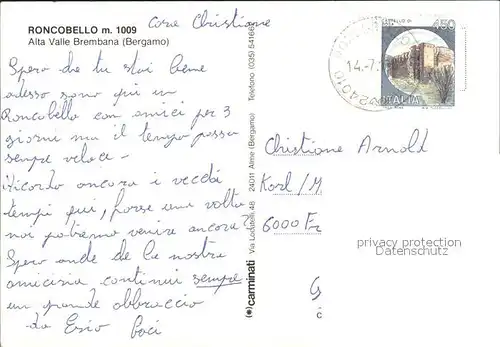 RONCOBELLO m. 1009
Alta Valle Brembana (Bergamo)
Cara Christiane
Spero che tu stai bene
adesso sono qui in
Roncobello con amici per 3
giorni ma il tempo passa
sempre veloce -
Ricordo ancora i vecchi
tempi qui, forse una volta
noi potremo venire ancora?
Spero anche che la nostra
amicizia continui sempre
un grande abbraccio
da Ezio Baci
(*)carminati Via Locatelli, 48 24011 Alme (Bergamo) Telefono (035) 54166
24010
14.-7.
450
ITALIA
Christiane Arnold
Karl/M
6000 Fr
privacy protection
DATENSCHUTZ